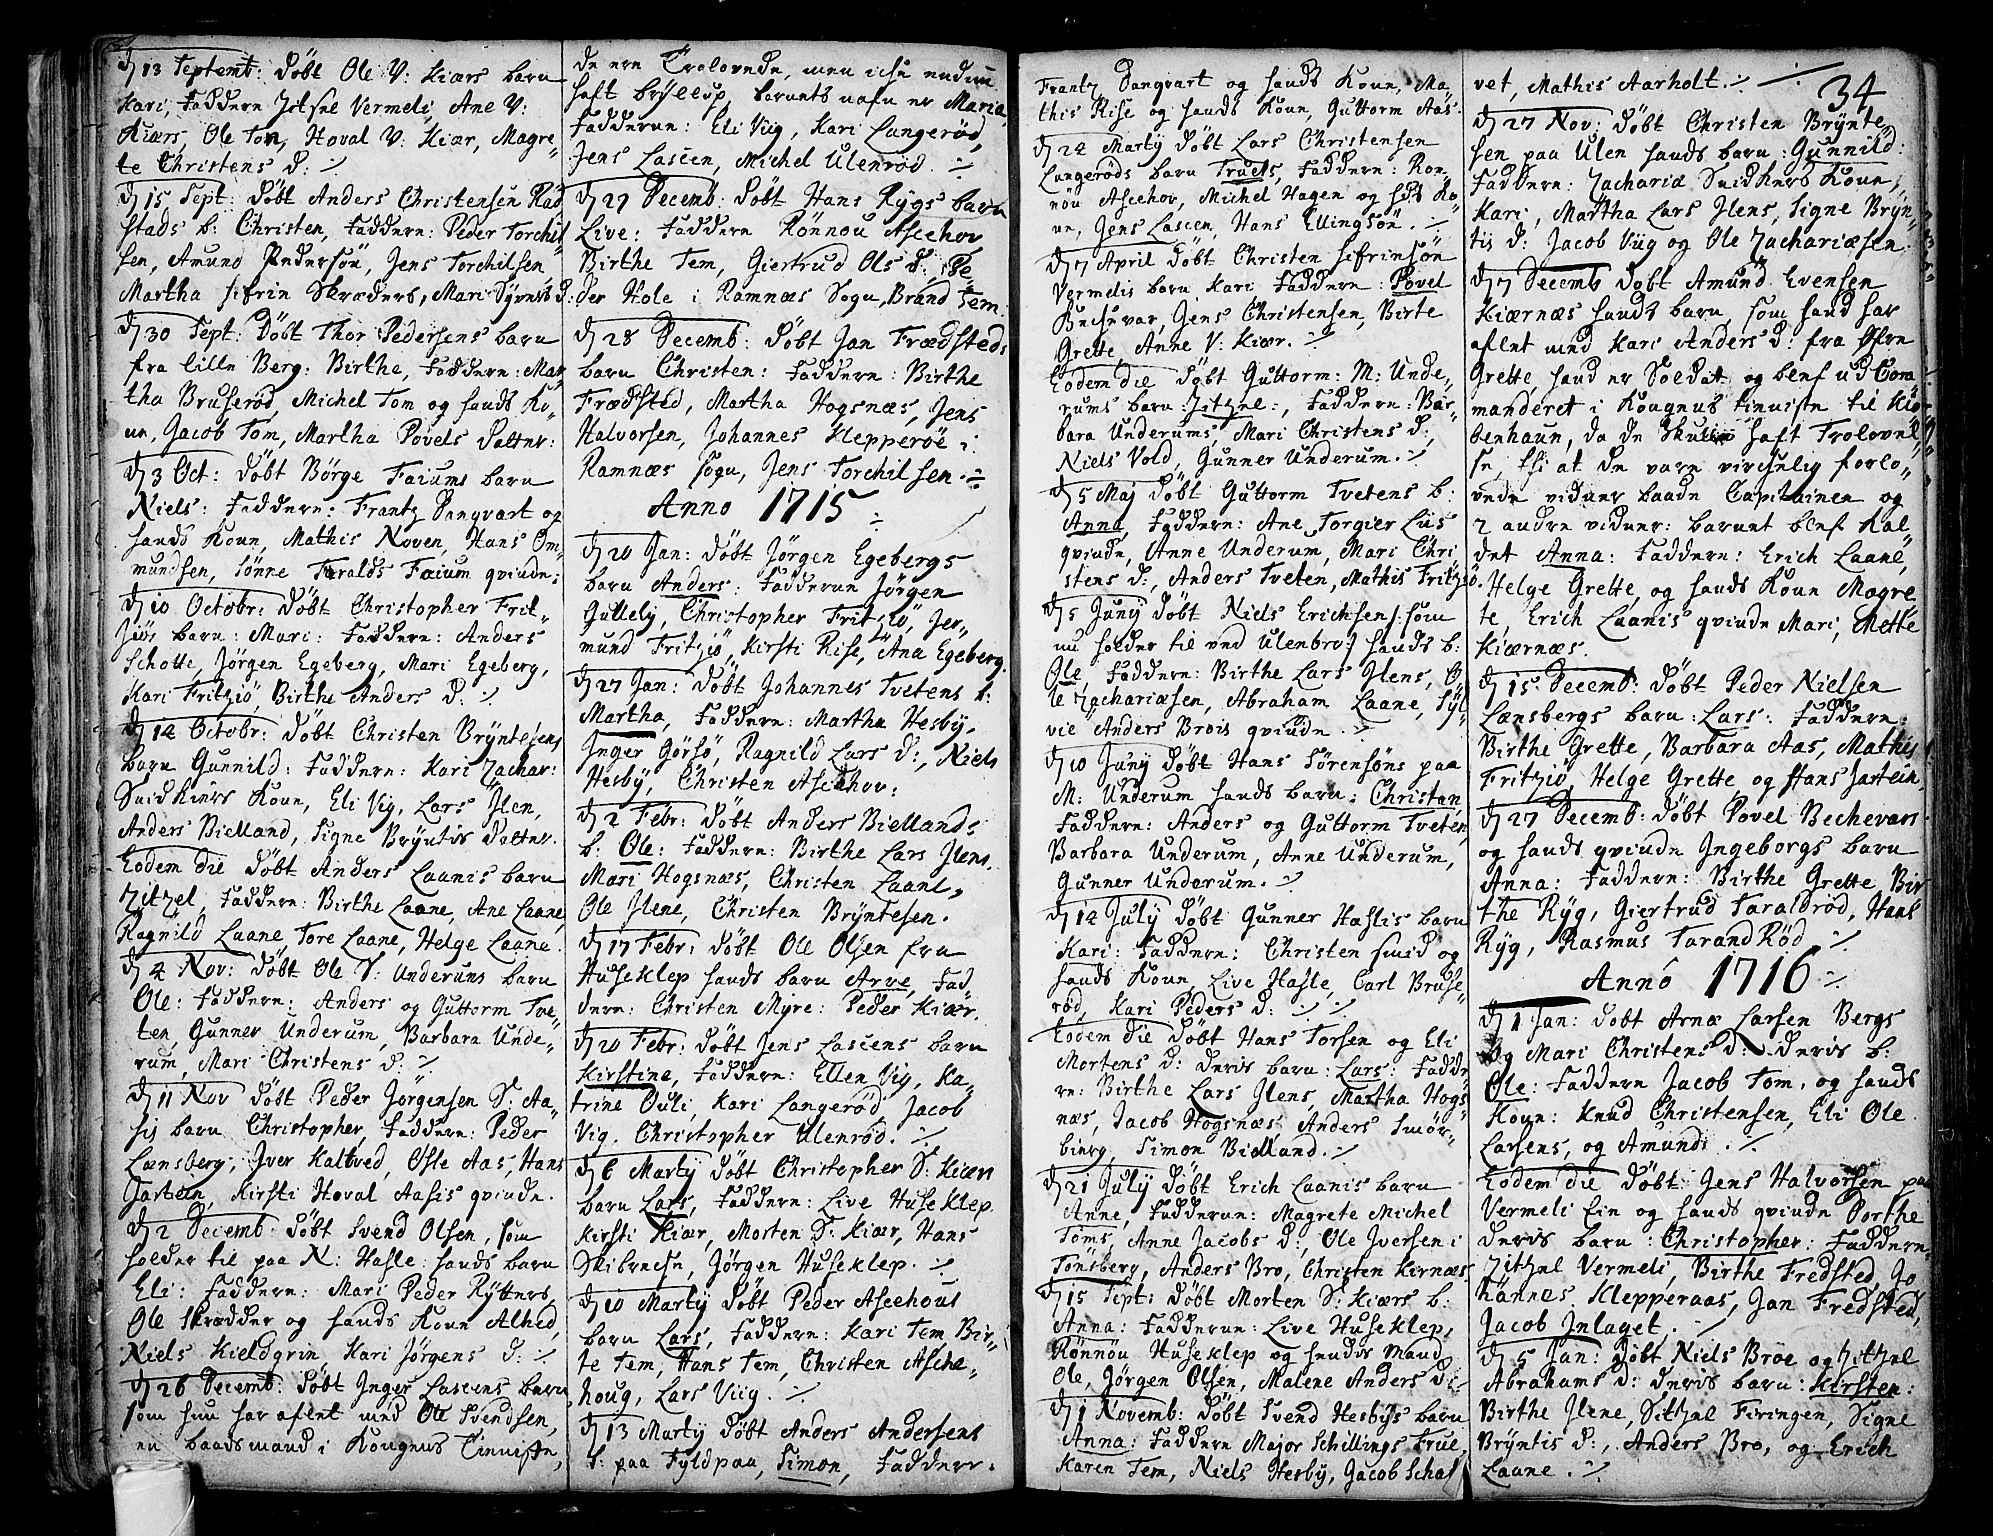 d 13 Septemb: Döbt Ole V: Kiærs barn
Kari, Faddere Zitzel Vermeli, Ane V:
Kiærs, Ole Tom, Hoval V: Kiær, Magre-
te Christens D: ⁒
d 15 Sept: Döbt Anders Christensen Rad
stads b: Christen, Faddere: Peder Torchil
sen, Amund Andersön, Jens Torchilsen,
Martha Sifrin Skræders, Mari Syverts D:
d 30 Sept: Döbt Thor Pedersens barn
fra lille Berg: Birthe, Faddere: Mar
tha Bruserød, Michel Tom og hands Ko-
ne, Jacob Tom, Martha Povels Datter.
d 3 Oct: Döbt Börge Faiums barn
Niels: Faddere: Frantz Danqvart og
hands Kone, Mathis Noven, Hans Om-
mundsen, Tönne Taralds Faium qvinde:
d 10 Octobr: Döbt Christopher Frit-
ziös barn: Mari: Faddere: Anders
Schotte, Jörgen Egeberg, Mari Egeberg,
Kari Fritziö, Birthe Anders D: ⁒
d 14 Octobr: Döbt Christen Bryntesens
barn Gunnild: Faddere: Kari Zachar:
Snidkers Kone, Eli Vig, Lars Ilen,
Anders Bielland, Signe Bryntis Datter.
Eodem die Döbt Anders Laanis barn
Zitzel, Faddere: Birthe Laane, Ane Laane,
Ragnild Laane, Tore Laane, Helge Laane.
d 4 Nov: Döbt Ole V: Underums barn
Ole: Faddere: Anders og Guttorm Tve-
ten, Gunner Underum, Barbara Unde-
rum, Mari Christens D: ⁒
d 11 Nov Döbt Peder Jörgensen S: Aa-
sis barn Christopher, Faddere: Peder
Lænsberg, Iver Kaltved, Osle Aas, Hans
Jartein, Kirsti Hoval Aasis qvinde.
d 2 Decemb: Döbt Svend Olsen, som
holder til paa N: Hasle hands barn
Eli: Faddere: Mari Peder Rytters,
Ole Skrædder og hands Kone Alhed,
Niels Kieldgrin Kari Jörgens D: ⁒
d 26 Decemb: Döbt Inger Lascens barn
som hun har aflet med Ole Svendsen,
en baadsmand i Kongens Tieniste,
de ere Trolovede, men icke endnu
haft bryllup, barnets nafn er Maria,
Faddere: Eli Viig, Kari Langerød,
Jens Lascen, Michel Ulenrød. ⁒
d 27 Decemb: Döbt Hans Rygs barn
Live: Faddere Rönnou Aschou,
Birthe Tem, Giertrud Ols D: Pe
der Hole i Ramnæs Sogn, Brand Tem.
d 28 Decemb: Döbt Jan Frædsteds
barn Christen: Faddere: Birthe
Frædsted, Martha Hogsnæs, Jens
Halvorsen, Johannes Klepperöe i
Ramnæs sogn, Jens Torchilsen. ⁒
Anno 1715 ⁒
d 20 Jan: Döbt Jörgen Egebergs
barn Anders: Faddere Jörgen
Gulleby, Christopher Fritziö, Jer-
mund Fritziö, Kirsti Rise, Ana Egeberg.
d 27 Jan: Döbt Johannes Tvetens b:
Martha, Faddere: Martha Hesby,
Inger Görsö, Ragnild Lars D:, Niels
Hesby, Christen Aschhov:
d 2 Febr: Döbt Anders Biellands
b: Ole: Faddere: Birthe Lars Ilens,
Mari Hogsnæs, Christen Laane,
Ole Ilene, Christen Bryntesen.
d 17 Febr: Döbt Ole Olsen fra
Huseklep hands barn Arve, Fad
dere: Christen Myre: Peder Kiær.
d 20 Febr: Döbt Jens Lascens barn
Kirstine, Faddere: Ellen Vig, Ka-
trine Ouli, Kari Langerød, Jacob
Vig, Christopher Ulenrød. ⁒
d 6 Marty Döbt Christopher S: Kiærs
barn Lars, Faddere: Live Huseklep,
Kirsti Kiær, Morten S: Kiær, Hans
Skibrese, Jörgen Huseklep. ⁒
d 10 Marty Döbt Peder Aschous
barn Lars, Faddere: Kari Tem, Bir-
te Tem, Hans Tem, Christen Asche-
houg, Lars Viig. ⁒
d 13 Marty Döbt Anders Andersens
b: paa Fyldpaa, Simon, Faddere:
Frantz Danqvart og hands Kone, Ma-
this Rise og hands Kone, Guttorm Aas.
d 24 Marty Döbt Lars Christensen
Langeröds barn Truels, Faddere: Ron-
nöu Aschov, Michel Hagen og hds Ko-
ne, Jens Lascen, Hans Ellingsön. ⁒
d 7 April Döbt Christen Sifrinsön
Vermelis barn Kari Faddere: Povel
Bechevar, Jens Christensen, Birte
Grette, Anne V: Kiær. ⁒
Eodem die Döbt Guttorm: M: Unde-
rums barn: Zitzel:, Faddere: Bar-
bara Underums, Mari Christens D:,
Niels Vold, Gunner Underum. ⁒
d 5 Maj Döbt Guttorm Tvetens b:
Anna, Faddere: Ane Torgier Lius
qvinde, Anne Underum, Mari Chri
stens D:, Anders Tveten, Mathis Fritzsö.
d 5 Juny Döbt Niels Erichsen /: som
nu holder til ved Ulenbro :/ hands b:
Ole, Faddere: Birthe Lars Ilens, O
le Zachariæsen, Abraham Laane, Syl-
vie Anders Brois qvinde. ⁒
d 10 Juny Döbt Hans Sörensöns paa
M: Underum hands barn: Christen,
Faddere: Anders og Guttorm Tveten,
Barbara Underum, Anne Underum,
Gunner Underum. ⁒
d 14 July Döbt Gunner Haslis barn
Kari: Faddere: Christen Smid og
hands Kone, Live Hasle, Carl Bruse-
röd, Kari Peders D: ⁒
Eodem die Döbt Hans Torsen og Eli
Mortens D: deris barn: Lars: Fadde
re: Birthe Lars Ilens, Martha Hogs-
næs, Jacob Hogsnæs, Anders Smör-
bierg, Simon Bielland. ⁒
d 21 July Döbt Erich Laanis barn
Anne, Faddere: Magrete Michel
Toms, Anne Jacobs D:, Ole Iversen i
Tönsberg, Anders Bro, Christen Kirnæs.
d 15 Sept: Döbt Morten S: Kiærs b:
Anna: Faddere: Live Huseklep,
Rönnöu Huseklep og hendes Mand
Ole, Jörgen Olsen, Malene Anders D:
d 1 Novemb: Döbt Svend Hesbys barn
Anna: Faddere Major Schillings Frue,
Karen Tem, Niels Hesby, Jacob Schal
vet, Mathis Aarholt. ⁒
34
d 27 Nov: Döbt Christen Brynte-
sen paa Ulen hands barn: Gunnild:
Faddere: Zachariæ Snidkers Kone,
Kari, Martha Lars Ilens, Signe Bryn-
tis D: Jacob Viig og Ole Zachariæsen.
d 7 Decemb Döbt Amund Evensen
Kiærnæs hands barn, som hand har
aflet med Kari Anders D: fra Øfre
Grette, hand er Soldat og blef ud Com
manderet i Kongens tieniste til Kiø-
benhaun, da de Skulle haft Trolovel
se, thi at de vare virckelig forlo-
vede vidner baade Capitainen og
2 andre vidner: barnet blef Kal-
det Anna: Faddere: Erich Laane,
Helge Grette, og hands Kone Magre
te, Erich Laanis qvinde Mari, Mette
Kiærnæs.
d 15 Decemb: Döbt Peder Nielsen
Lænsbergs barn: Lars: Faddere:
Birthe Grette, Barbara Aas, Mathis
Fritziö, Helge Grette og Hans Jartein,
d 27 Decemb: Döbt Povel Bechevars
og hands qvinde Ingeborgs barn
Anna: Faddere: Birthe Grette Bir
the Ryg, Giertrud Taraldrød, Hans
Ryg, Rasmus TarandRød ⁒
Anno 1716 ⁒
d 1 Jan: Döbt Arnæ Larsen Bergs
og Mari Christens D: deris b:
Ole: Faddere Jacob Tom, og hands
Kone: Knud Christensen, Eli Ole
Larsens, og Amund: ⁒
Eodem die Döbt Jens Halvorsen paa
Vermeli Eie og hands qvinde Dorthe
deris barn: Christopher: Faddere:
Zitzel Vermeli, Birthe Fredsted, Jo
hannes Klepperaas, Jan Fredsted,
Jacob Inlaget. ⁒
d 5 Jan: Döbt Niels Broe og Zitzel
Abrahams D: deris barn: Kirsten:
Birthe Ilene, Sitzel Firingen, Signe
Bryntis D:, Anders Bro, og Erich
Laane. ⁒